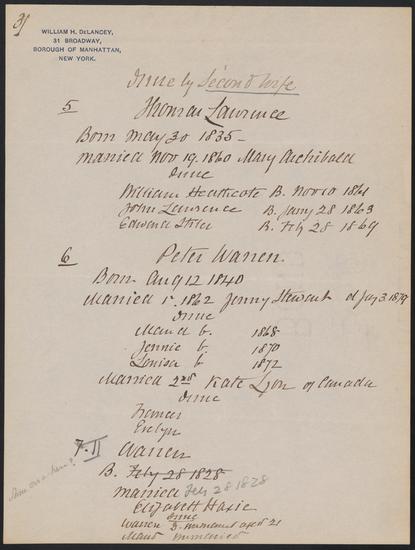 39
WILLIAM H. DeLANCEY,
31 BROADWAY,
BOROUGH OF MANHATTAN,
NEW YORK.
Issue by Second Wife
5 Thomas Lawrence
Born May 30 1835-
Married Nov 19. 1860 Mary Archibald
Issue
William Heathcote B. Nov 10 1861
John Lawrence B. Jany 28 1863
Edward B. Feby 28 1869
6 Peter Warren.
Born Aug 12 1840
Married 1st 1862 Jenny Stewart d July 3. 1879
Issue
Maud b. 1868
Jennie b. 1870
Louisa b 1872
Married 2nd Kate Lyon of Canada
Issue
Frances
Evelyn
7. II Warren
B. Feby 28 1828
Married Feb 28 1828
Elizabeth Haxie
Issue
Warren D. unmarried aged 21
Maud unmarried